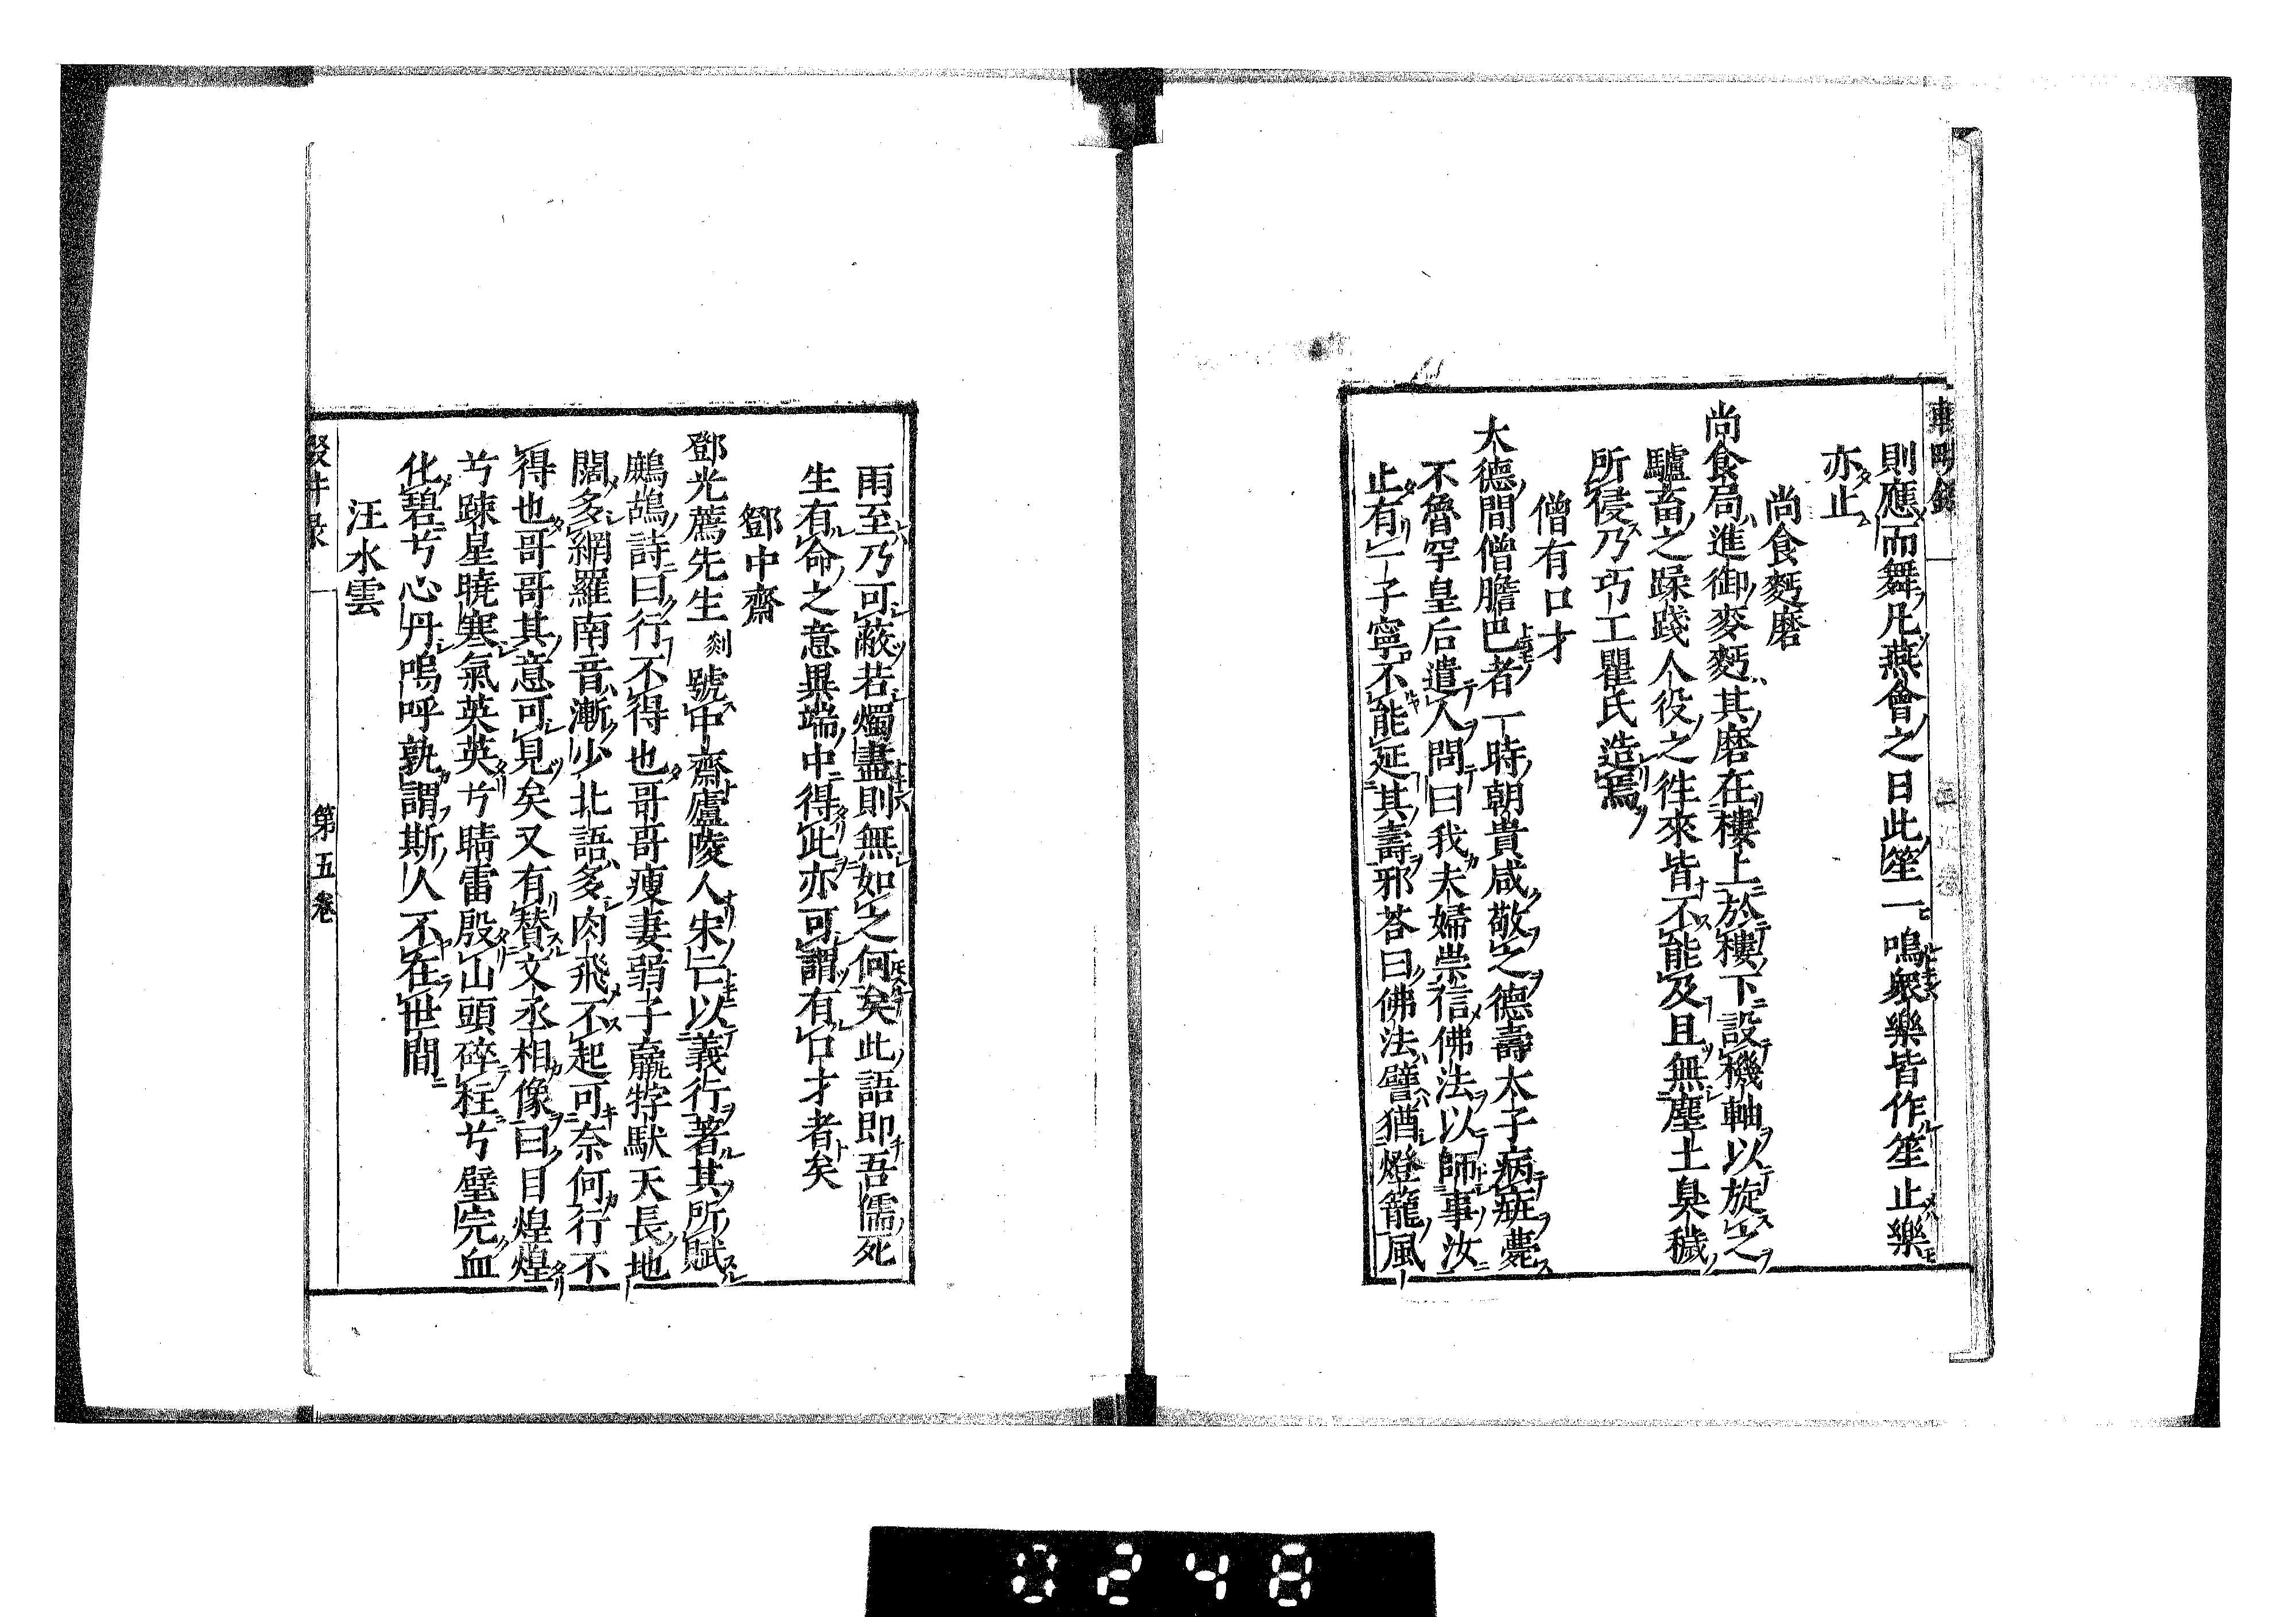 則應而舞凡燕會之日此笙一鳴衆樂皆作笙止樂
亦止
尚食麪磨
尚食局進御麥麪其磨在樓上於樓下設機軸以旋之
驢畜之蹂踐人役之徃來皆不能及且無塵土臭穢
所侵乃巧工瞿氏造焉
僧有口才
大德間僧膽巴者一時朝貴咸敬之德壽太子病癍薨
不魯罕皇后遣人問曰我夫婦崇信佛法以師事汝
止有一子寧不能延其壽邪荅曰佛法譬猶燈籠風
雨至乃可蔽若燭盡則無如之何矣此語即吾儒死
生有命之意異端中得此亦可謂有口才者矣
鄧中齋
鄧光薦先生剡號中齋廬陵人宋亡以義行著其所賦
鷓鴣詩曰行不得也哥哥瘦妻弱子羸牸馱天長地
闊多網羅南音漸少北語多肉飛不起可奈何行不
得也哥哥其意可見矣又有贊文丞相像曰目煌煌
兮踈星曉寒氣英英兮晴雷殷山頭碎柱兮璧完血
化碧兮心丹嗚呼孰謂斯人不在世間
汪水雲
第五卷